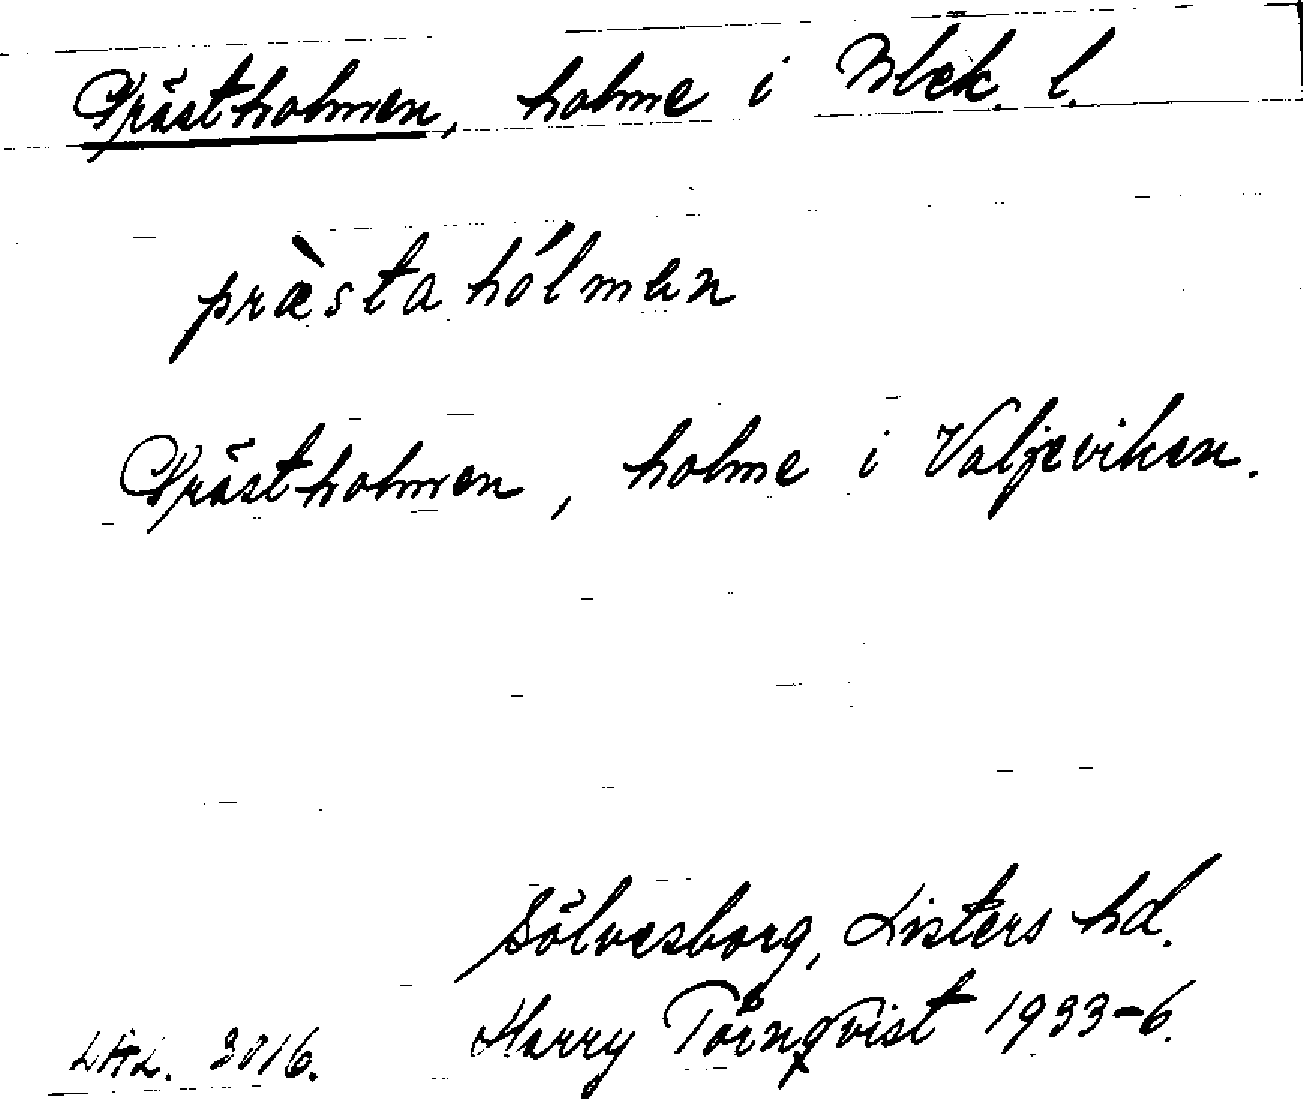 Prästholmen, holme i Blek. l.
præ̀sta hólmen
Prästholmen, holme i Valjeviken.
Sölvesborg, Listers hd.
LAL. 3016. Harry Törnqvist 1933-6.